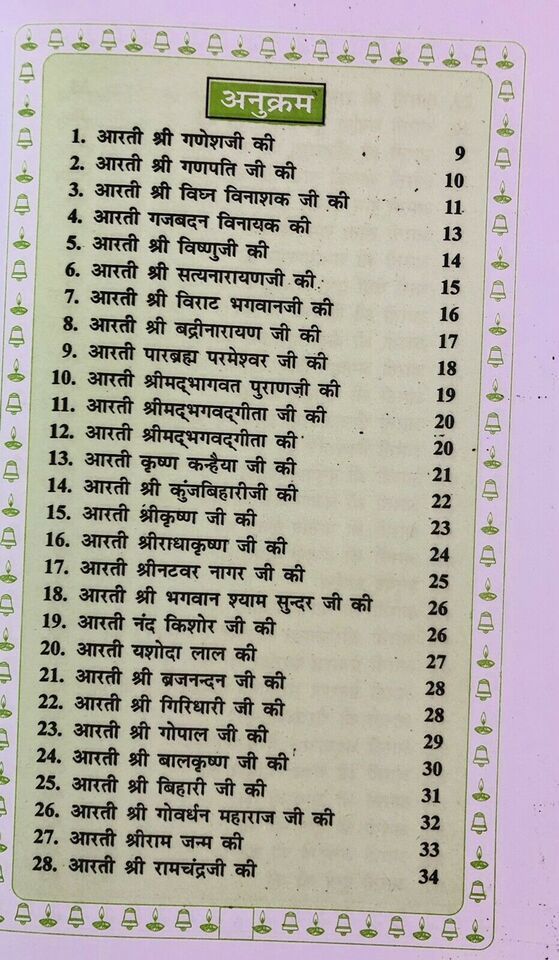 अनुक्रम
1. आरती श्री गणेशजी की 9
2. आरती श्री गणपति जी की 10
3. आरती श्री विघ्न विनाशक जी की 11
4. आरती गजबदन विनायक की 13
5. आरती श्री विष्णुजी की 14
6. आरती श्री सत्यनारायणजी की 15
7. आरती श्री विराट भगवानजी की 16
8. आरती श्री बद्रीनारायण जी की 17
9. आरती पारब्रह्म परमेश्वर जी की 18
10. आरती श्रीमद्भागवत पुराणजी की 19
11. आरती श्रीमद्भगवद्गीता जी की 20
12. आरती श्रीमद्भगवद्गीता की 20
13. आरती कृष्ण कन्हैया जी की 21
14. आरती श्री कुंजबिहारीजी की 22
15. आरती श्रीकृष्ण जी की 23
16. आरती श्रीराधाकृष्ण जी की 24
17. आरती श्रीनटवर नागर जी की 25
18. आरती श्री भगवान श्याम सुन्दर जी की 26
19. आरती नंद किशोर जी की 26
20. आरती यशोदा लाल की 27
21. आरती श्री ब्रजनन्दन जी की 28
22. आरती श्री गिरिधारी जी की 28
23. आरती श्री गोपाल जी की 29
24. आरती श्री बालकृष्ण जी की 30
25. आरती श्री बिहारी जी की 31
26. आरती श्री गोवर्धन महाराज जी की 32
27. आरती श्रीराम जन्म की 33
28. आरती श्री रामचंद्रजी की 34